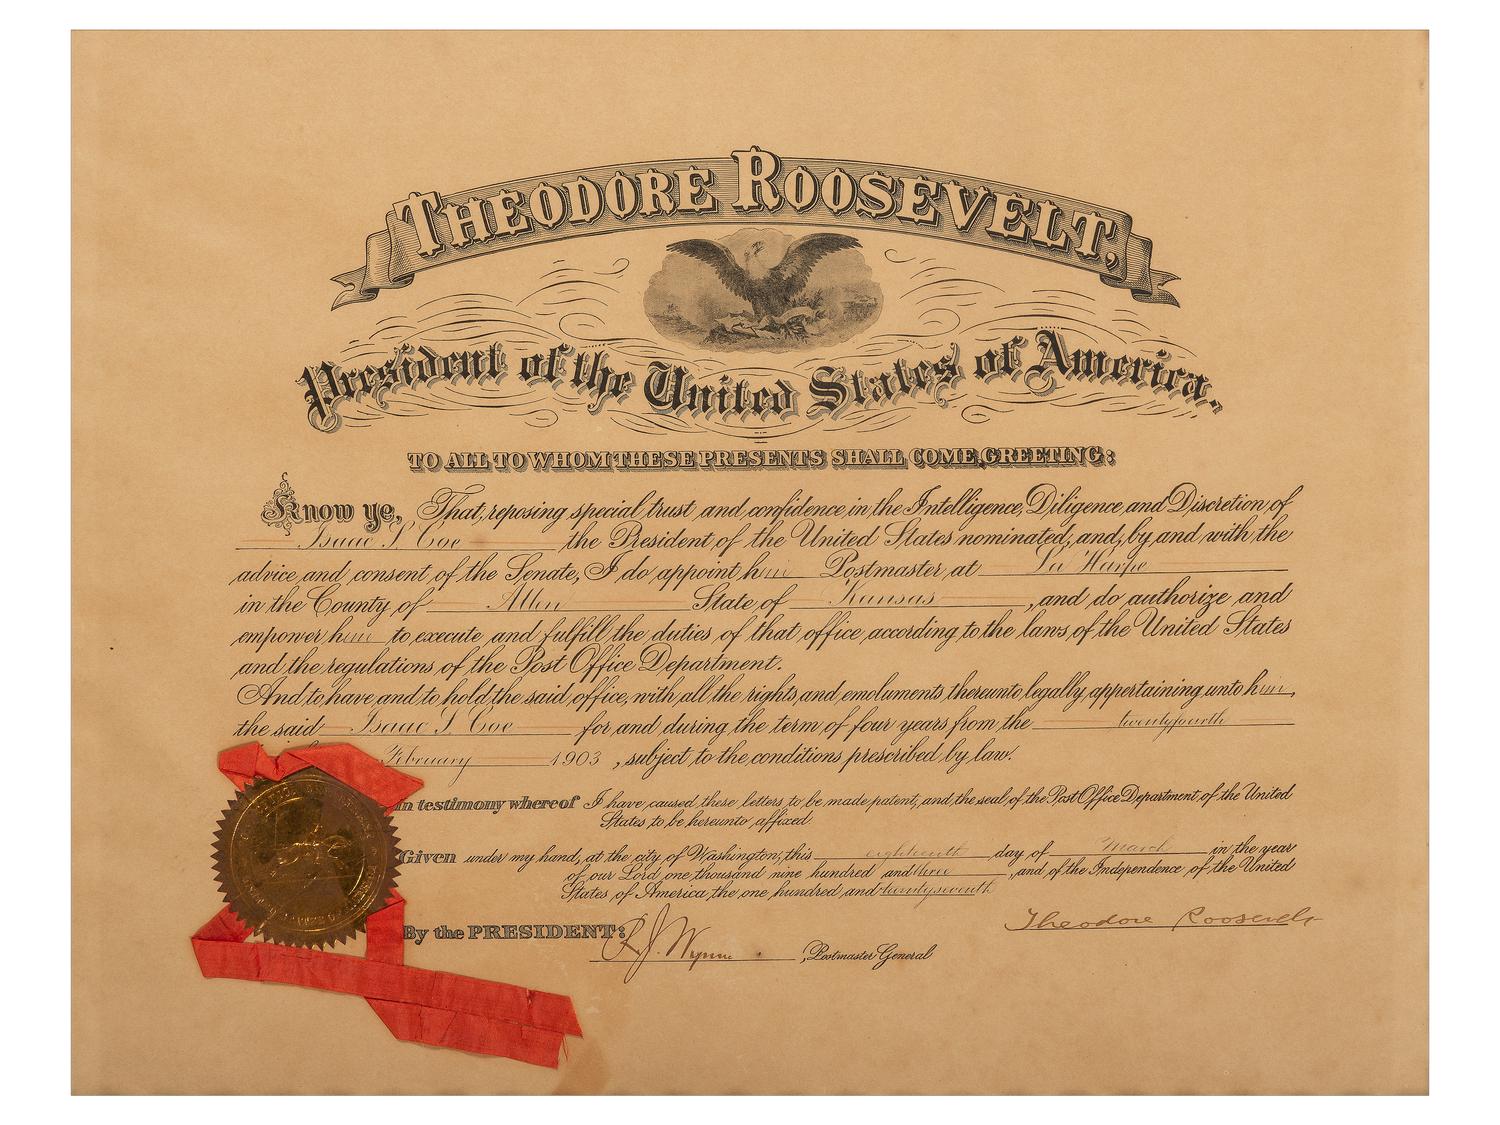 THEODORE ROOSEVELT,
President of the United States of America.
TO ALL TO WHOM THESE PRESENTS SHALL COME, GREETING:
Know ye, That, reposing special trust and confidence in the Intelligence, Diligence and Discretion of
Isaac S. Coe the President of the United States nominated, and, by and with the
advice and consent of the Senate, I do appoint him Postmaster at La Harpe
in the County of Allen State of Kansas, and do authorize and
empower him to execute and fulfill the duties of that office, according to the laws of the United States
and the regulations of the Post Office Department.
And to have and to hold the said office, with all the rights and emoluments thereunto legally appertaining unto him,
the said Isaac S. Coe for and during the term of four years from the twentyfourth
February 1903, subject to the conditions prescribed by law.
In testimony whereof I have caused these letters to be made patent, and the seal of the Post Office Department of the United
States to be hereunto affixed
Given under my hand, at the city of Washington, this eighteenth day of March in the year
of our Lord one thousand nine hundred and three, and of the Independence of the United
States of America the one hundred and twentyseventh
By the PRESIDENT:
Theodore Roosevelt
R. J. Wynne, Postmaster General